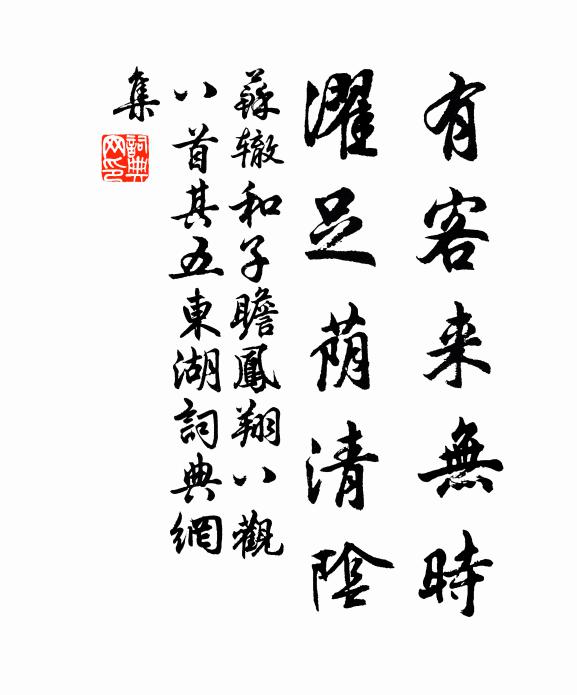 有客来無時
濯足荫清陰
蘇辙和子瞻鳳翔八觀
八首其五東湖詞典網
集
詞典网印